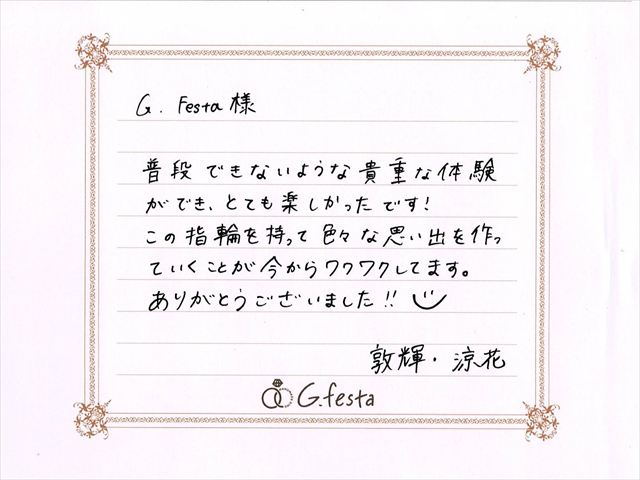 G. Festa 様
普段できないような貴重な体験
ができ、とても楽しかったです!
この指輪を持って色々な思い出を作っ
ていくことが今からワクワクしてます。
ありがとうございました!!
敦輝・涼花
G.festa